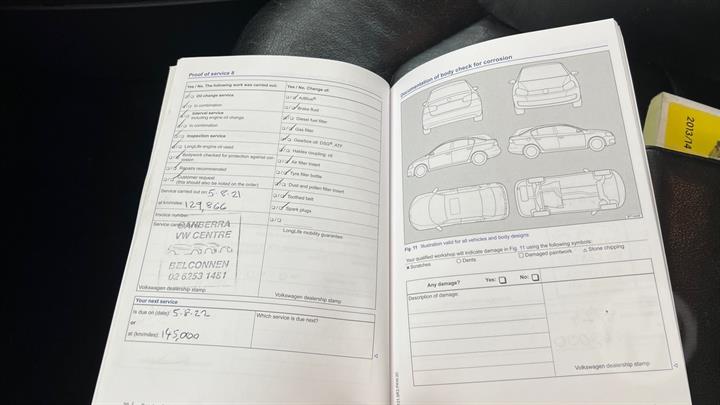 Proof of service 8
Yes / No. The following work was carried out:
Oil change service
In combination
Interval service
including engine oil change
In combination
Inspection service
LongLife engine oil used
Bodywork checked for protection against corrosion
Repairs recommended
Customer request
(this should also be noted on the order)
Service carried out on: 5.8.21
at km/miles: 129,866
Invoice number:
Service carried out by:
CANBERRA
VW CENTRE
BELCONNEN
02 6253 1481
Volkswagen dealership stamp
Yes / No. Change of:
AdBlue®
Brake fluid
Diesel fuel filter
Gas filter
Gearbox oil: DSG®, ATF
Haldex coupling: oil
Air filter insert
Tyre bottle
Dust and pollen filter insert
Toothed belt
Spark plugs
LongLife mobility guarantee
Volkswagen dealership stamp
Your next service
Is due on (date): 5.8.22
or
at (km/miles): 145,000
Which service is due next?
Documentation of body check for corrosion
Fig. 11 Illustration valid for all vehicles and body designs
Your qualified workshop will indicate damage in Fig. 11 using the following symbols:
Scratches
Dents
Damaged paintwork
Stone chipping
Any damage?
Yes:
No:
Description of damage:
Volkswagen dealership stamp
2013/14